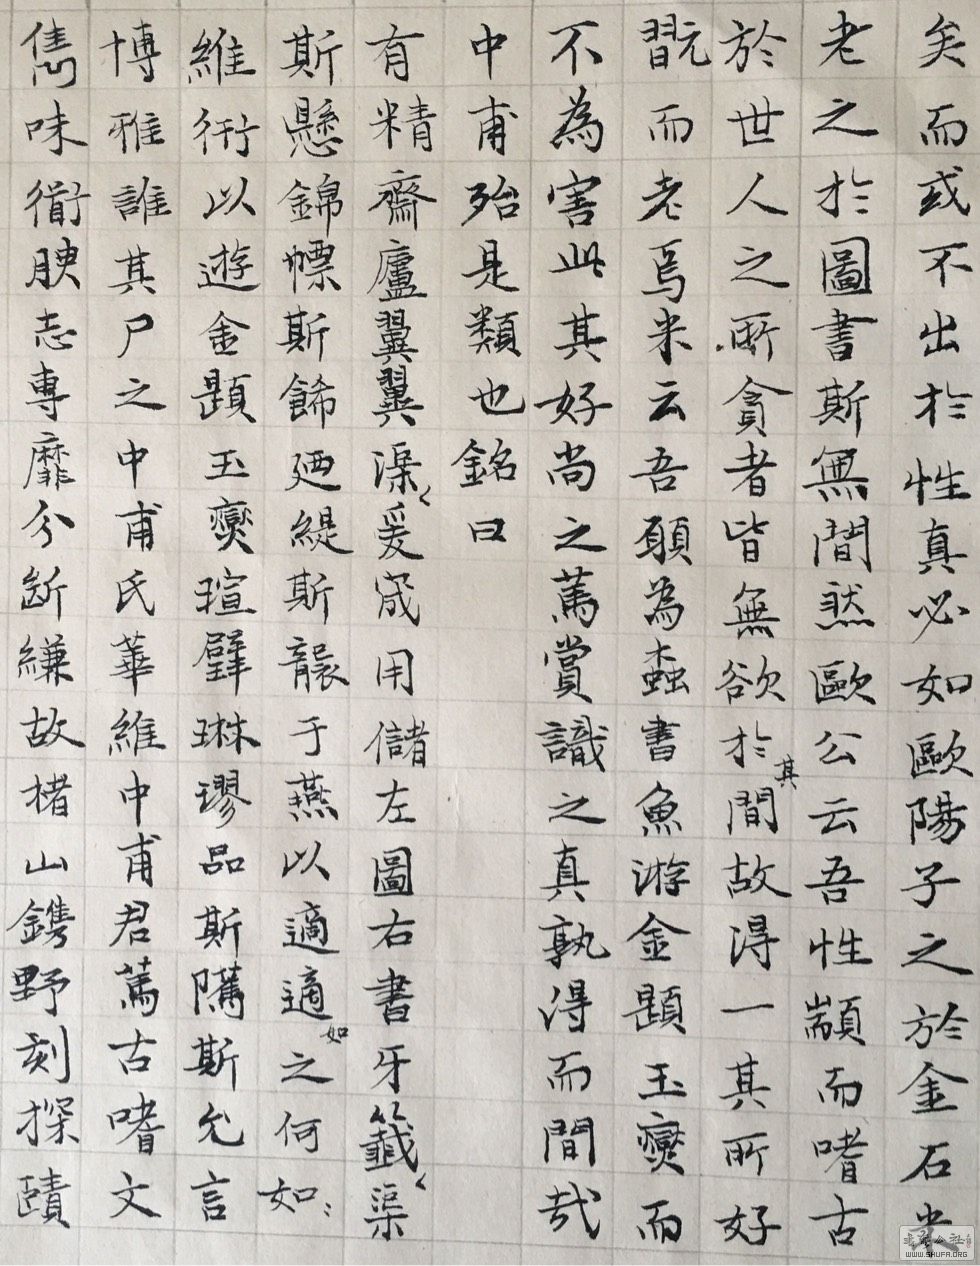 矣而或不出於性真必如歐陽子之於金石米
老之於圖書斯無間然歐公云吾性顓而嗜古
於世人之所貪者皆無欲於其間故得一其所好
翫而老焉米云吾願為蠹書魚游金題玉躞而
不為害此其好尚之篤賞識之真孰得而間哉
中甫殆是類也銘曰
有精齋廬翼翼渠〻爰宬用儲左圖右書牙籤〻渠
斯懸錦幖斯飾廼緹斯襲于燕以適適如之何如〻
維衎以遊金題玉躞瑄璧琳璆品斯隲斯允言
博雅誰其尸之中甫氏華維中甫君篤古嗜文
雋味衜腴志專靡分斷縑故楮山鐫野刻探賾
WWW.SHUFA.ORG